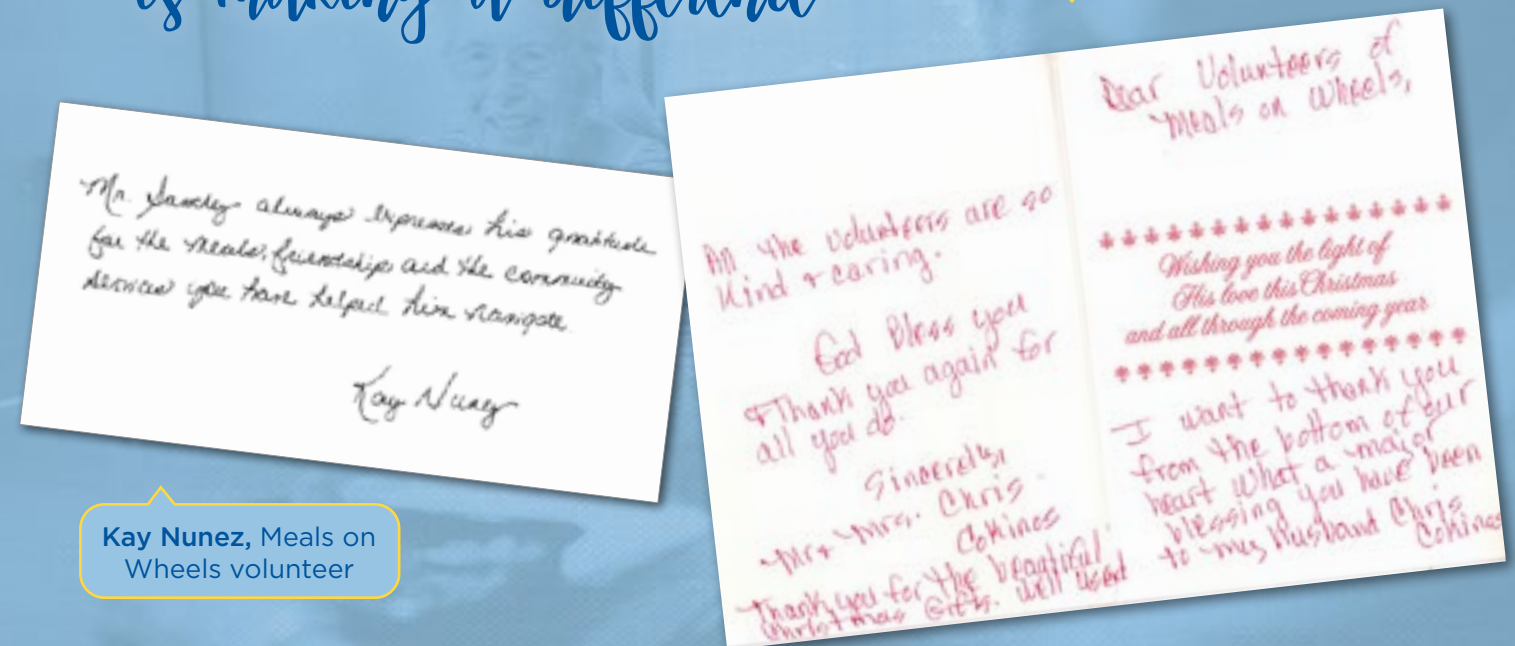 is making a difference
Mr. Sanchez always expresses his gratitude
for the meals, friendship and the community
services you have helped him navigate.
Kay Nunez
Kay Nunez, Meals on
Wheels volunteer
All the volunteers are so
kind & caring.
God Bless you
& Thank you again for
all you do.
Sincerely,
Mr & Mrs. Chris
Cokinos
Thank you for the beautiful
Christmas Gifts. Will used
Dear Volunteers of
Meals on Wheels,
Wishing you the light of
His love this Christmas
and all through the coming year
I want to thank you
from the bottom of our
heart What a major
blessing you have been
to my husband Chris
Cokinos